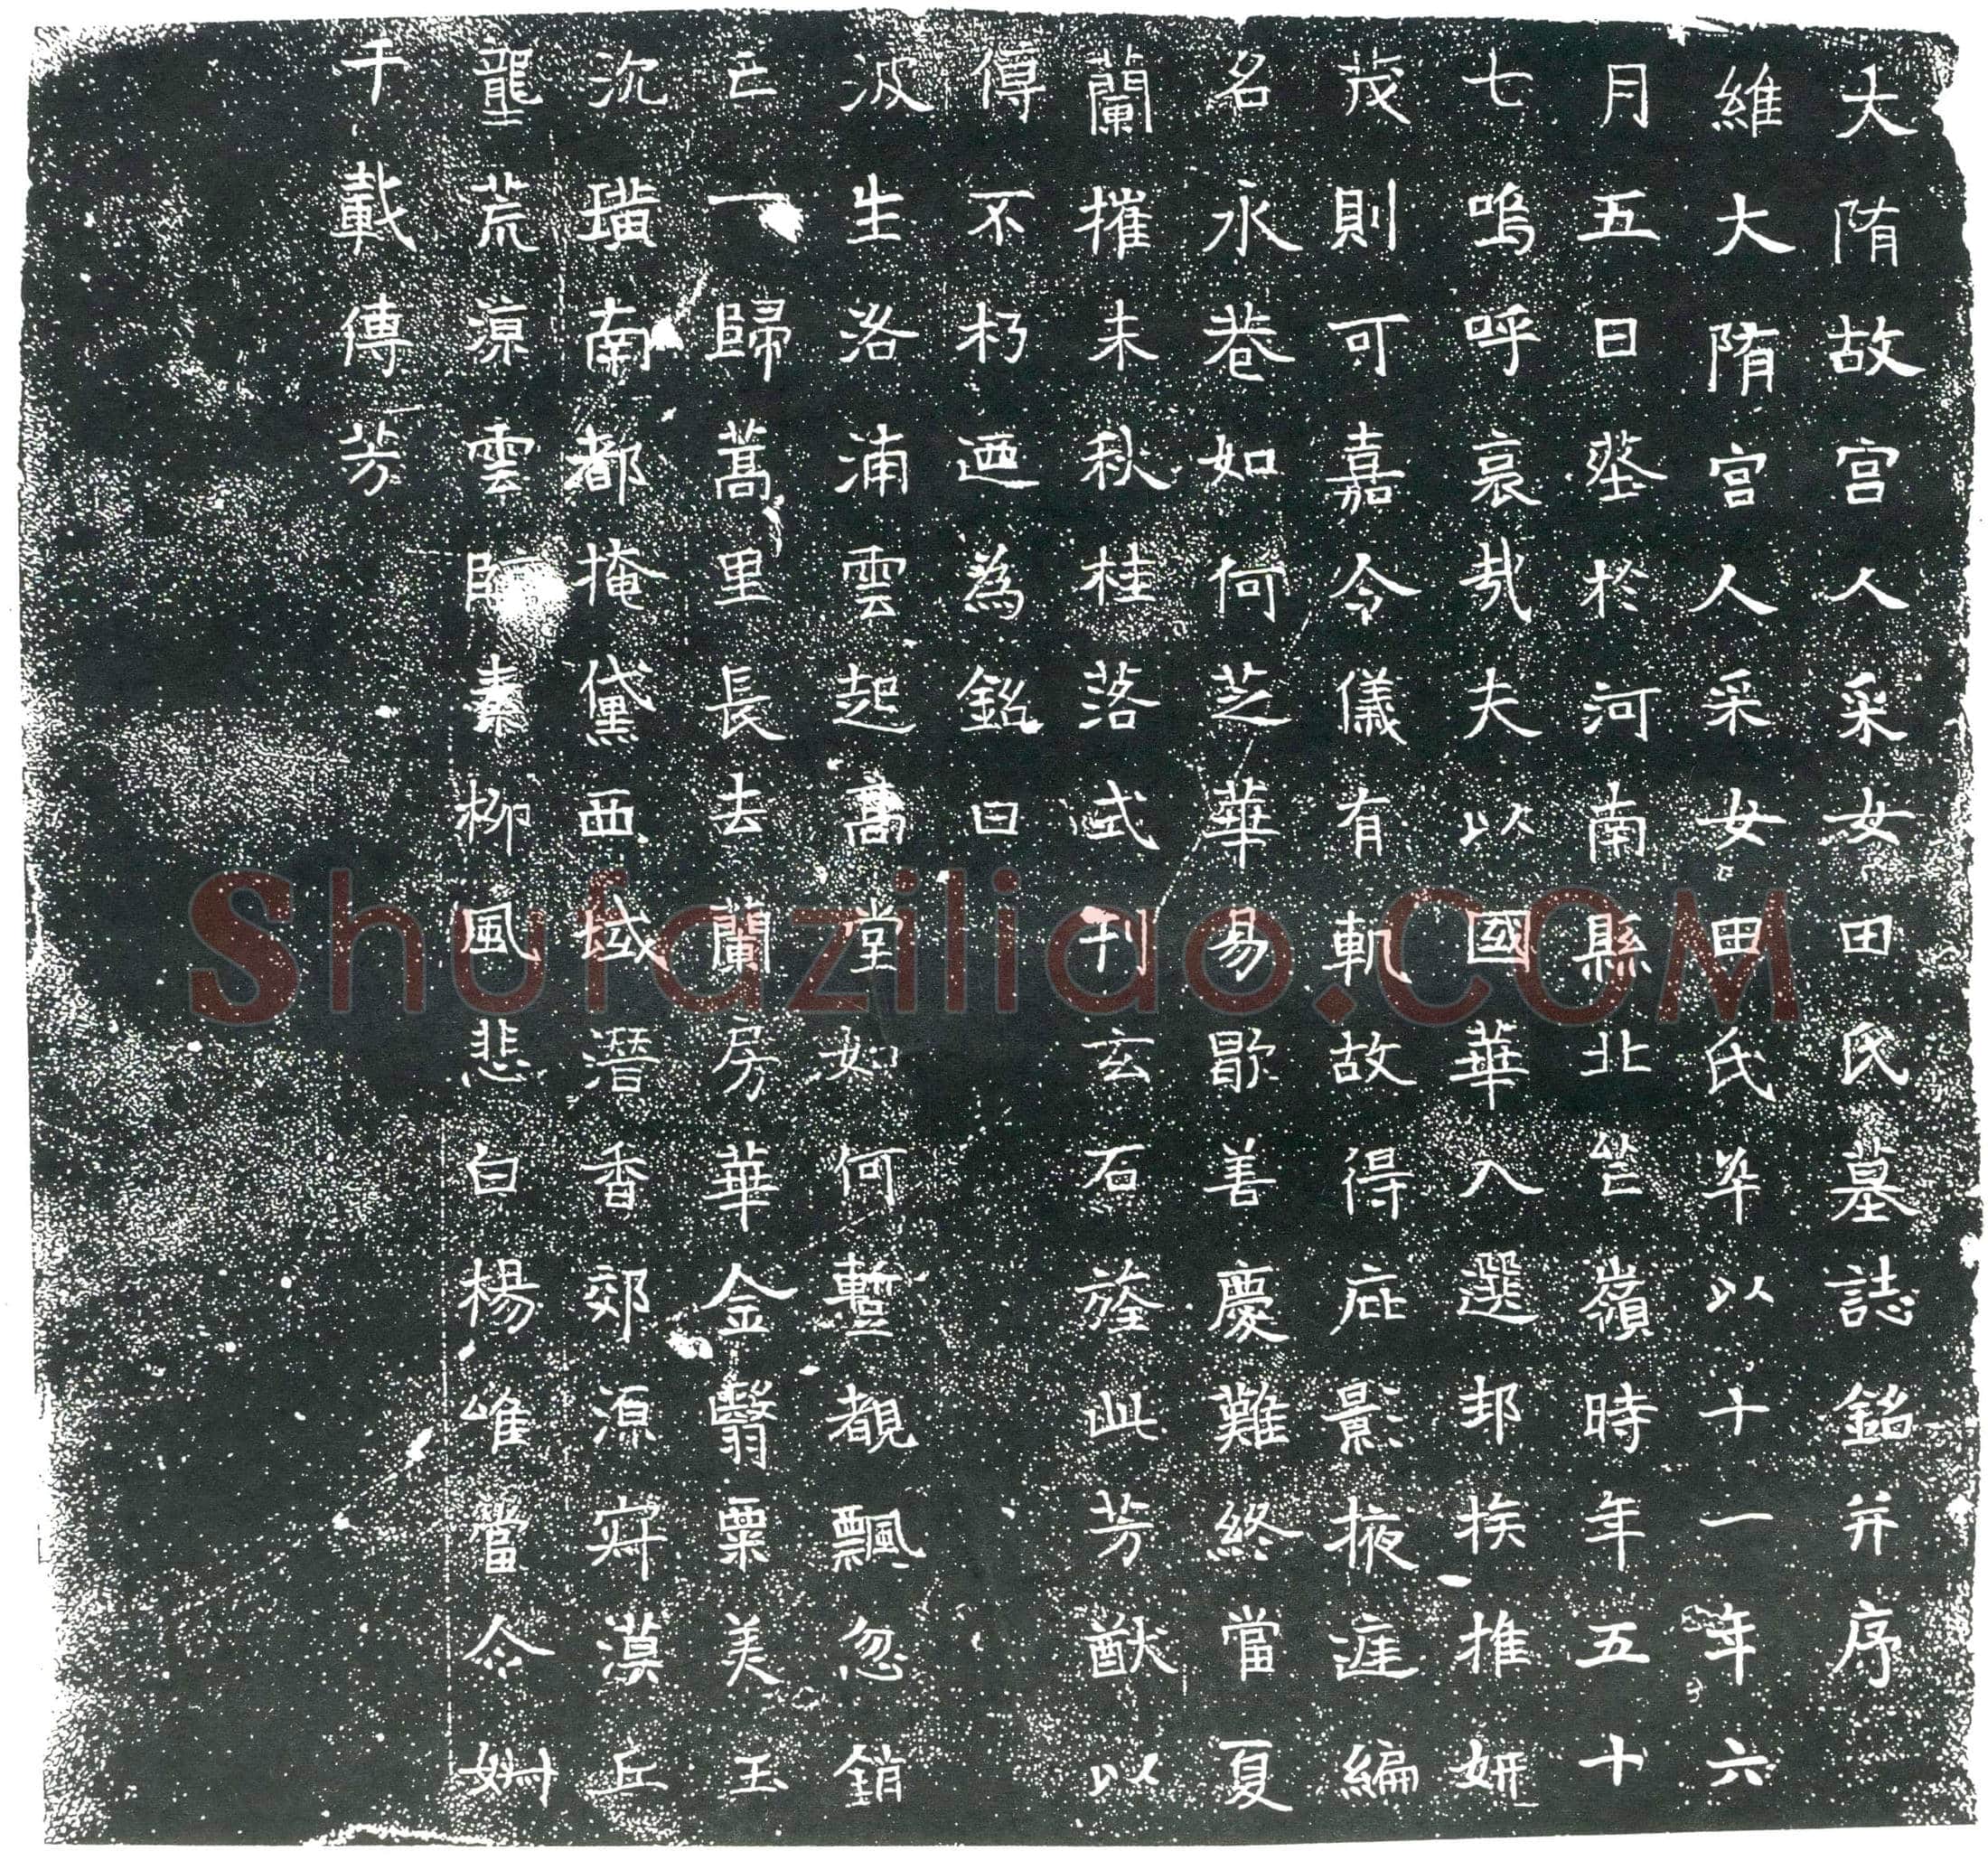 大隋故宫人采女田氏墓誌銘并序
維大隋宫人采女田氏卒以十一年六
月五日塟於河南縣北芒嶺時年五十
七嗚呼哀哉夫以國華入選邦族推妍
茂則可嘉令儀有軌故得庇影掖涯編
名永巷如何芝華易歇善慶難終當夏
蘭摧未秋桂落式刊玄石旌此芳猷以
傳不朽迺為銘曰
波生洛浦雲起高堂如何蹔覩飄忽銷
亡一歸蒿里長去蘭房華金翳粟美玉
沉璜南都掩黛西域潛香郊源寂漠丘
壟荒凉雲皈素柳風悲白楊唯當令姍
千載傳芳
Shufaziliao.COM